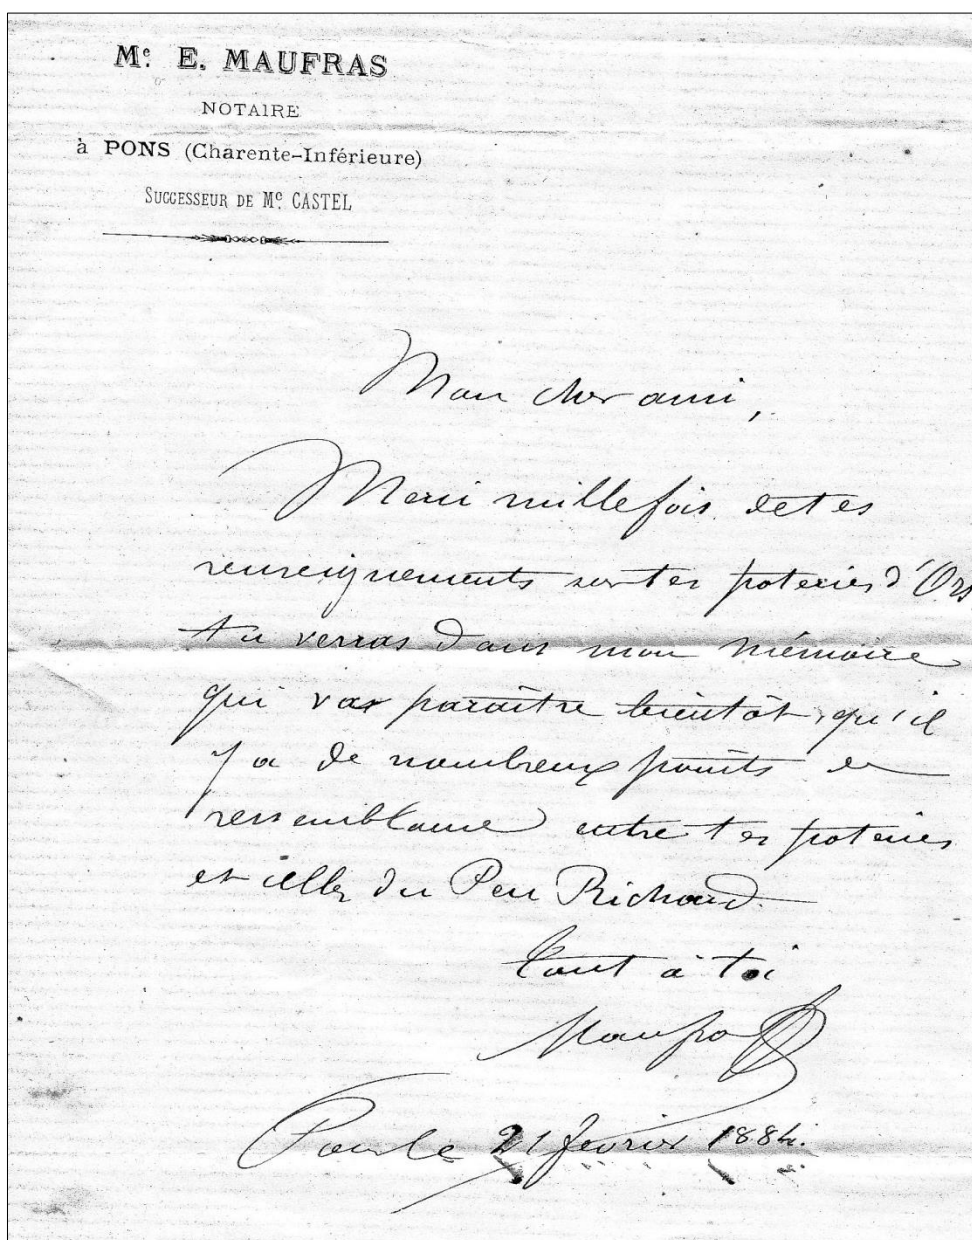 Mᵉ. E. MAUFRAS
NOTAIRE
à PONS (Charente-Inférieure)
SUCCESSEUR DE Mᵉ. CASTEL
Mon cher ami,
Merci mille fois de tes
renseignements sur tes poteries d'Ors
tu verras dans mon mémoire
qui vas paraître bientôt, qu'il
y a de nombreux points de
ressemblance entre tes poteries
et celles du Peu Richard.
Tout à toi
Maufras
Pons le 21 février 1884.